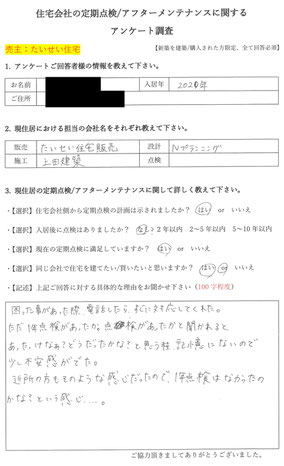 住宅会社の定期点検/アフターメンテナンスに関する
アンケート調査
売主：たいせい住宅
【新築を建築/購入された方限定、全て回答必須】
1. アンケートご回答者様の情報を教えて下さい。
お名前 入居年 2020年
ご住所
2. 現住居における担当の会社名をそれぞれ教えて下さい。
販売 たいせい住宅販売 設計 Nプランニング
施工 上田建築 点検
3. 現住居の定期点検/アフターメンテナンスに関して詳しく教えて下さい。
・【選択】住宅会社側から定期点検の計画は示されましたか？ はい or いいえ
・【選択】入居後に点検はありましたか？ なし 2年以内 2~5年以内 5~10年以内
・【選択】現在の定期点検に満足していますか？ はい or いいえ
・【選択】同じ会社で住宅を建てたい/買いたいと思いますか？ はい or いいえ
・【記述】上記ご回答に対する具体的な理由をお聞かせ下さい（100字程度）
困った事があった際、電話したら、すぐに対応してくれた。
ただ1年点検があったか。点検があったかと聞かれると
あったけな？どうだったかな？と思う程、記憶にないので
少し不安感がでた。
近所の方もそのような感じだったので、1年点検はなかったの
かな？という感じ…。
ご協力頂きましてありがとうございました。